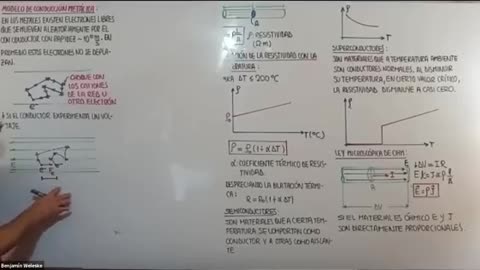 MODELO DE CONDUCCIÓN METÁLICA:
EN LOS METALES EXISTEN ELECTRONES LIBRES
QUE SE MUEVEN ALEATORIAMENTE POR EL
CONDUCTOR CON RAPIDEZ ~ 10⁶ m/s. EN
PROMEDIO ESTOS ELECTRONES NO SE DEPLA-
ZAN.
CHOQUE CON
LOS CATIONES
DE LA RED U
OTRO ELECTRÓN
e⁻
SI EL CONDUCTOR EXPERIMENTA UN VOL-
TAJE.
A
ρ: RESISTIVIDAD
(Ω·m)
DE LA RESISTIVIDAD CON LA
ΔT ≤ 200 °C
ρ
ρ₀
T(°C)
ρ = ρ₀(1+αΔT)
α: COEFICIENTE TÉRMICO DE RESIS-
TIVIDAD.
DESPRECIANDO LA DILATACIÓN TÉRMI-
CA:
R = R₀(1+αΔT)
SEMICONDUCTORES
SON MATERIALES QUE A CIERTA TEMPE-
RATURA SE COMPORTAN COMO
CONDUCTOR Y A OTRAS COMO AISLAN-
TE.
ρ
T
SUPERCONDUCTORES:
SON MATERIALES QUE A TEMPERATURA AMBIENTE
SON CONDUCTORES NORMALES. AL DISMINUIR
SU TEMPERATURA, EN CIERTO VALOR CRÍTICO,
LA RESISTIVIDAD DISMINUYE A CASI CERO.
ρ
T
LEY MICROSCÓPICA DE OHM:
E
I
A
ΔU
ΔU = IR
SI EL MATERIAL ES ÓHMICO E Y J
SON DIRECTAMENTE PROPORCIONALES.
Benjamín Weleske